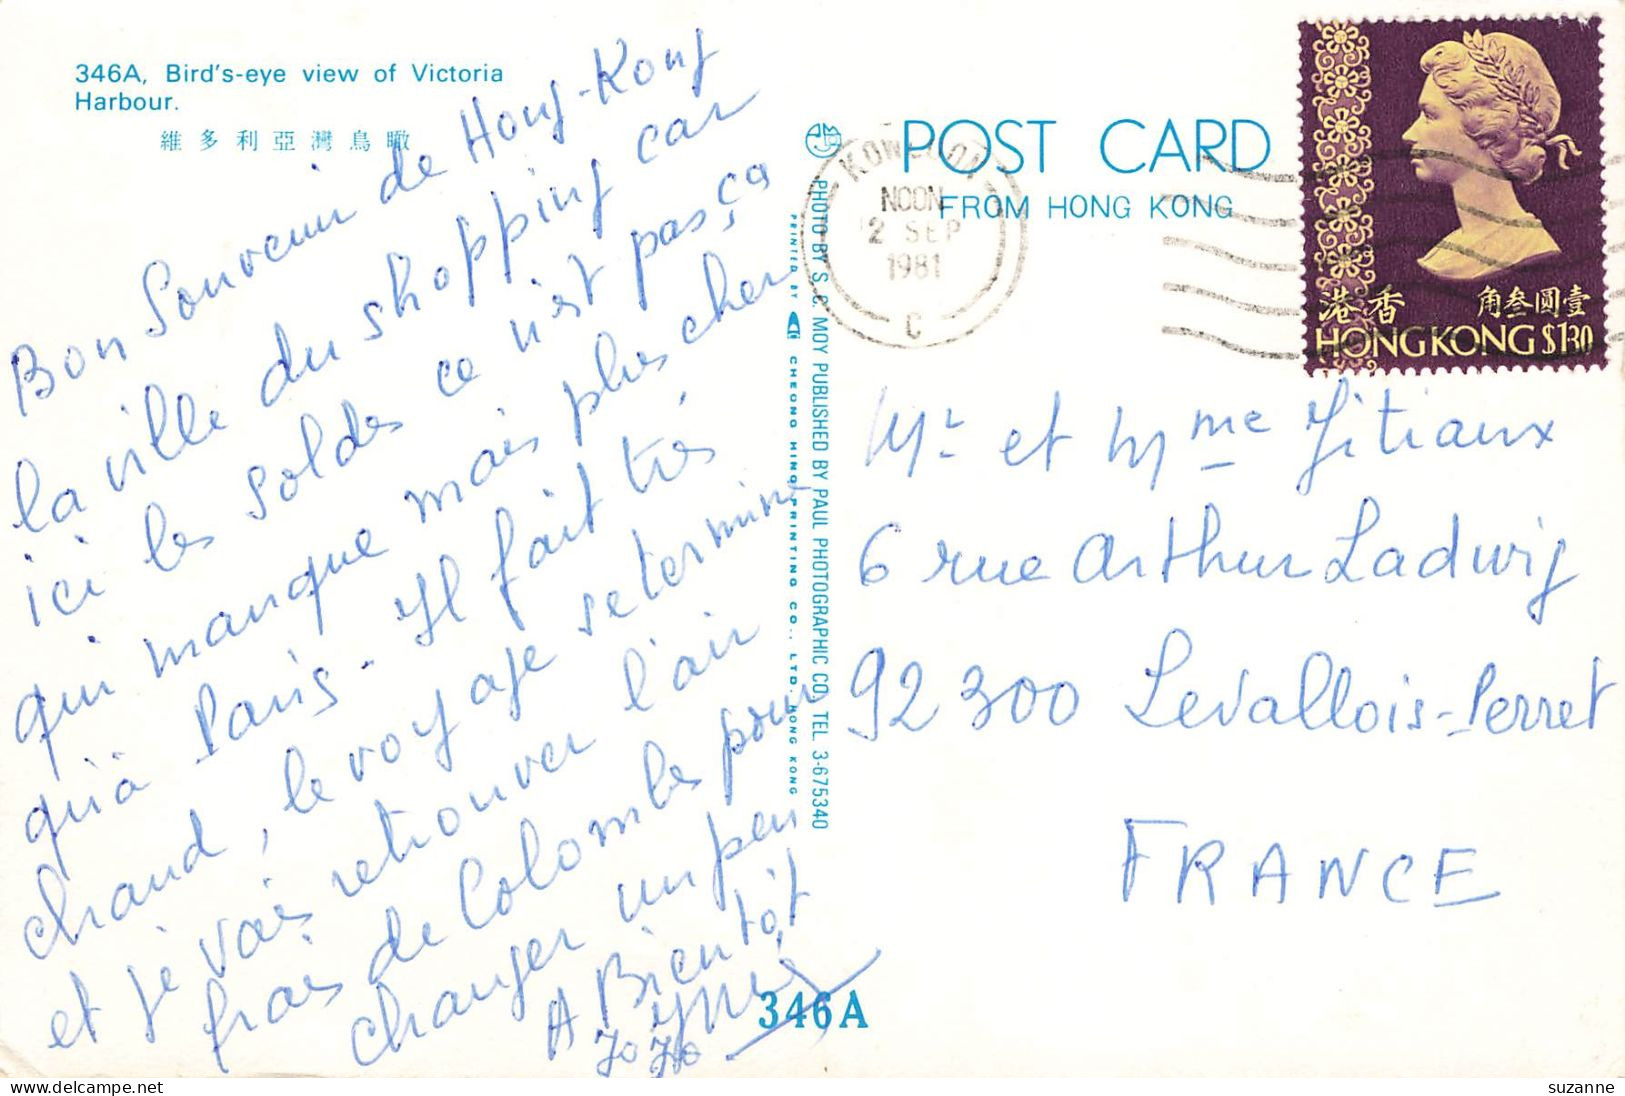 346A, Bird's-eye view of Victoria
Harbour.
維多利亞灣鳥瞰
Bon Souvenir de Hong-Kong
la ville du shopping car
ici les soldes ce n'est pas ça
qui manque mais plus cher
qu'à Paris. Il fait très
chaud, le voyage se termine
et je vais retrouver l'air
frais de Colombes pour
changer un peu
A Bientôt
Jojo
PHOTO BY S. C. MOY PUBLISHED BY PAUL PHOTOGRAPHIC CO., TEL 3-675340
PRINTED BY CHEONG HING PRINTING CO., LTD. HONG KONG
346A
POST CARD
FROM HONG KONG
KOWLOON
NOON
2 SEP
1981
C
香港
壹圓叁角
HONG KONG $1.30
Mr et Mme Titiaux
6 rue Arthur Ladwig
92300 Levallois-Perret
FRANCE
suzanne